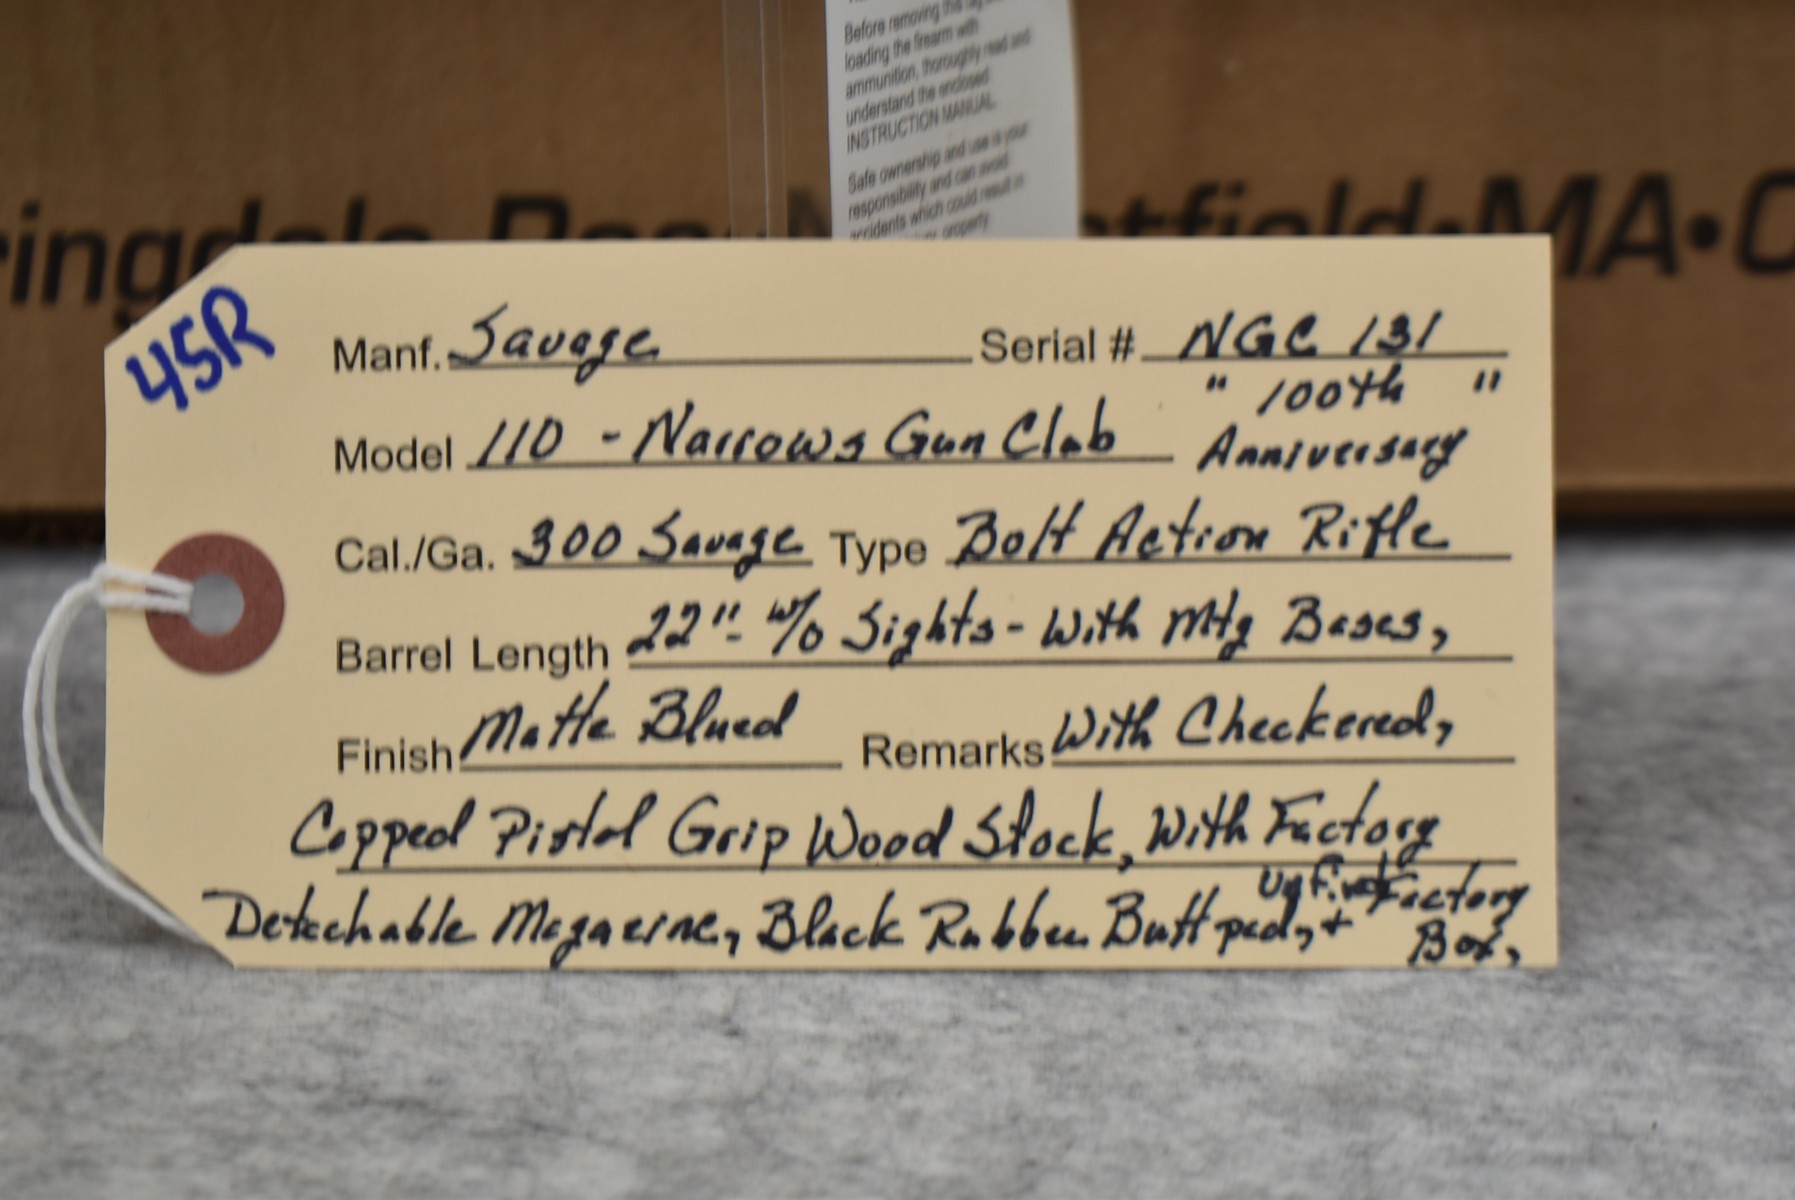 Before removing this tag
loading the firearm with
ammunition, thoroughly read and
understand the enclosed
INSTRUCTION MANUAL.
Safe ownership and use is your
responsibility and can avoid
accidents which could result in
properly
MA•
45R
Manf. Savage Serial # NGC 131
Model 110 - Narrows Gun Club " 100th "
Anniversary
Cal./Ga. 300 Savage Type Bolt Action Rifle
Barrel Length 22"- w/o Sights - With Mtg Bases,
Finish Matte Blued Remarks With Checkered,
Capped Pistol Grip Wood Stock, With Factory
Detachable Magazine, Black Rubber Buttpad, + Factory
Box,